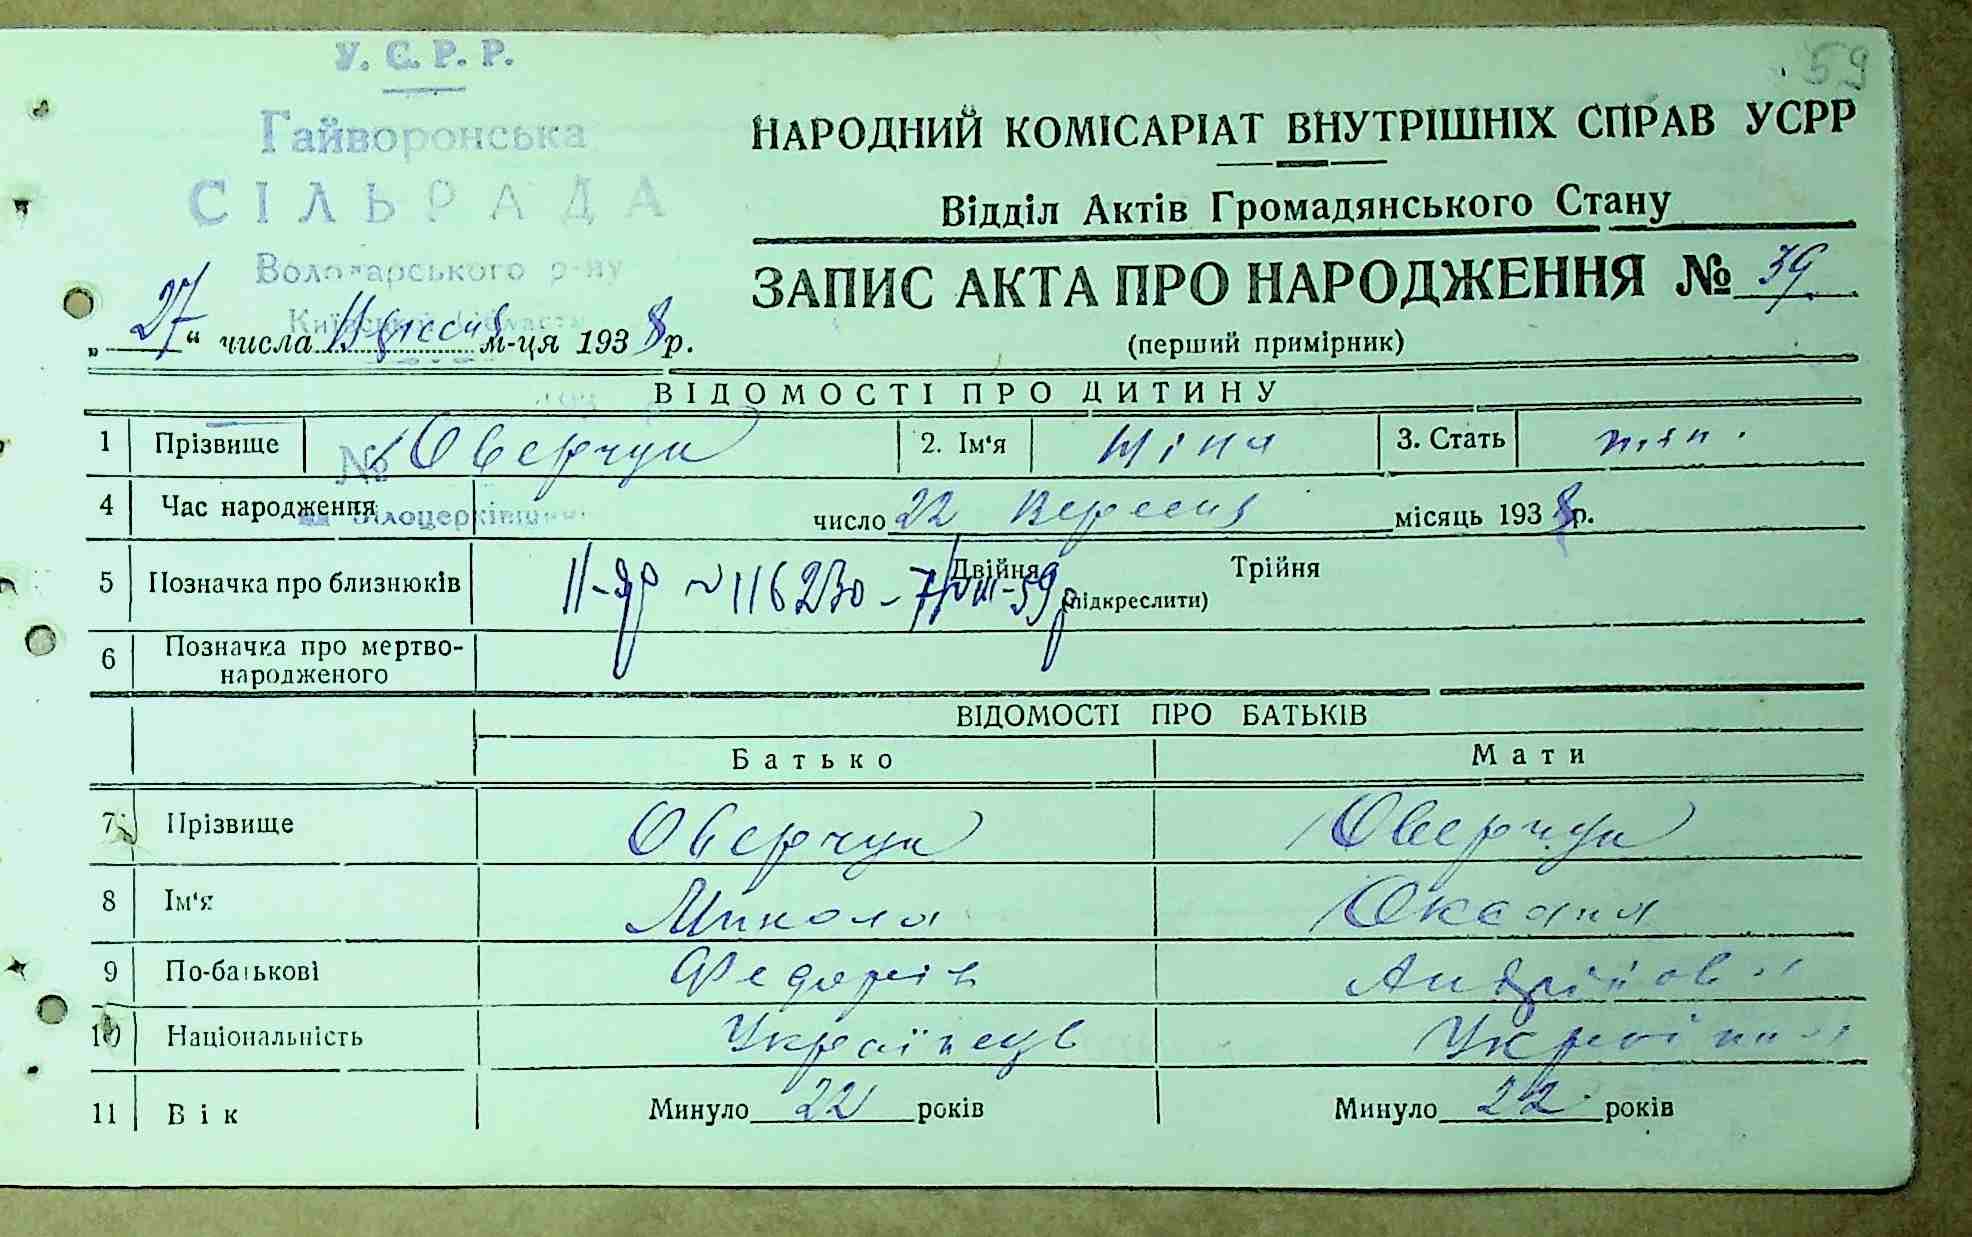 59
У. С. Р. Р.
Гайворонська
СІЛЬРАДА
Володарського р-ну
Київської області
№
Білоцерківщини
НАРОДНИЙ КОМІСАРІАТ ВНУТРІШНІХ СПРАВ УСРР
Відділ Актів Громадянського Стану
ЗАПИС АКТА ПРО НАРОДЖЕННЯ № 39.
(перший примірник)
„27“ числа Вересня м-ця 1938 р.
ВІДОМОСТІ ПРО ДИТИНУ
1 Прізвище Оверчук 2. Ім'я Ніна 3. Стать жін.
4 Час народження число 22 Вересня місяць 1938 р.
5 Позначка про близнюків Двійня Трійня
(підкреслити)
II-яр ~116230 - 7/VIII-59р
6 Позначка про мертво-
народженого
ВІДОМОСТІ ПРО БАТЬКІВ
Батько Мати
7 Прізвище Оверчук Оверчук
8 Ім'я Микола Оксана
9 По-батькові Федорів Андріїов
10 Національність Українець
11 Вік Минуло 22 років Минуло 22 років